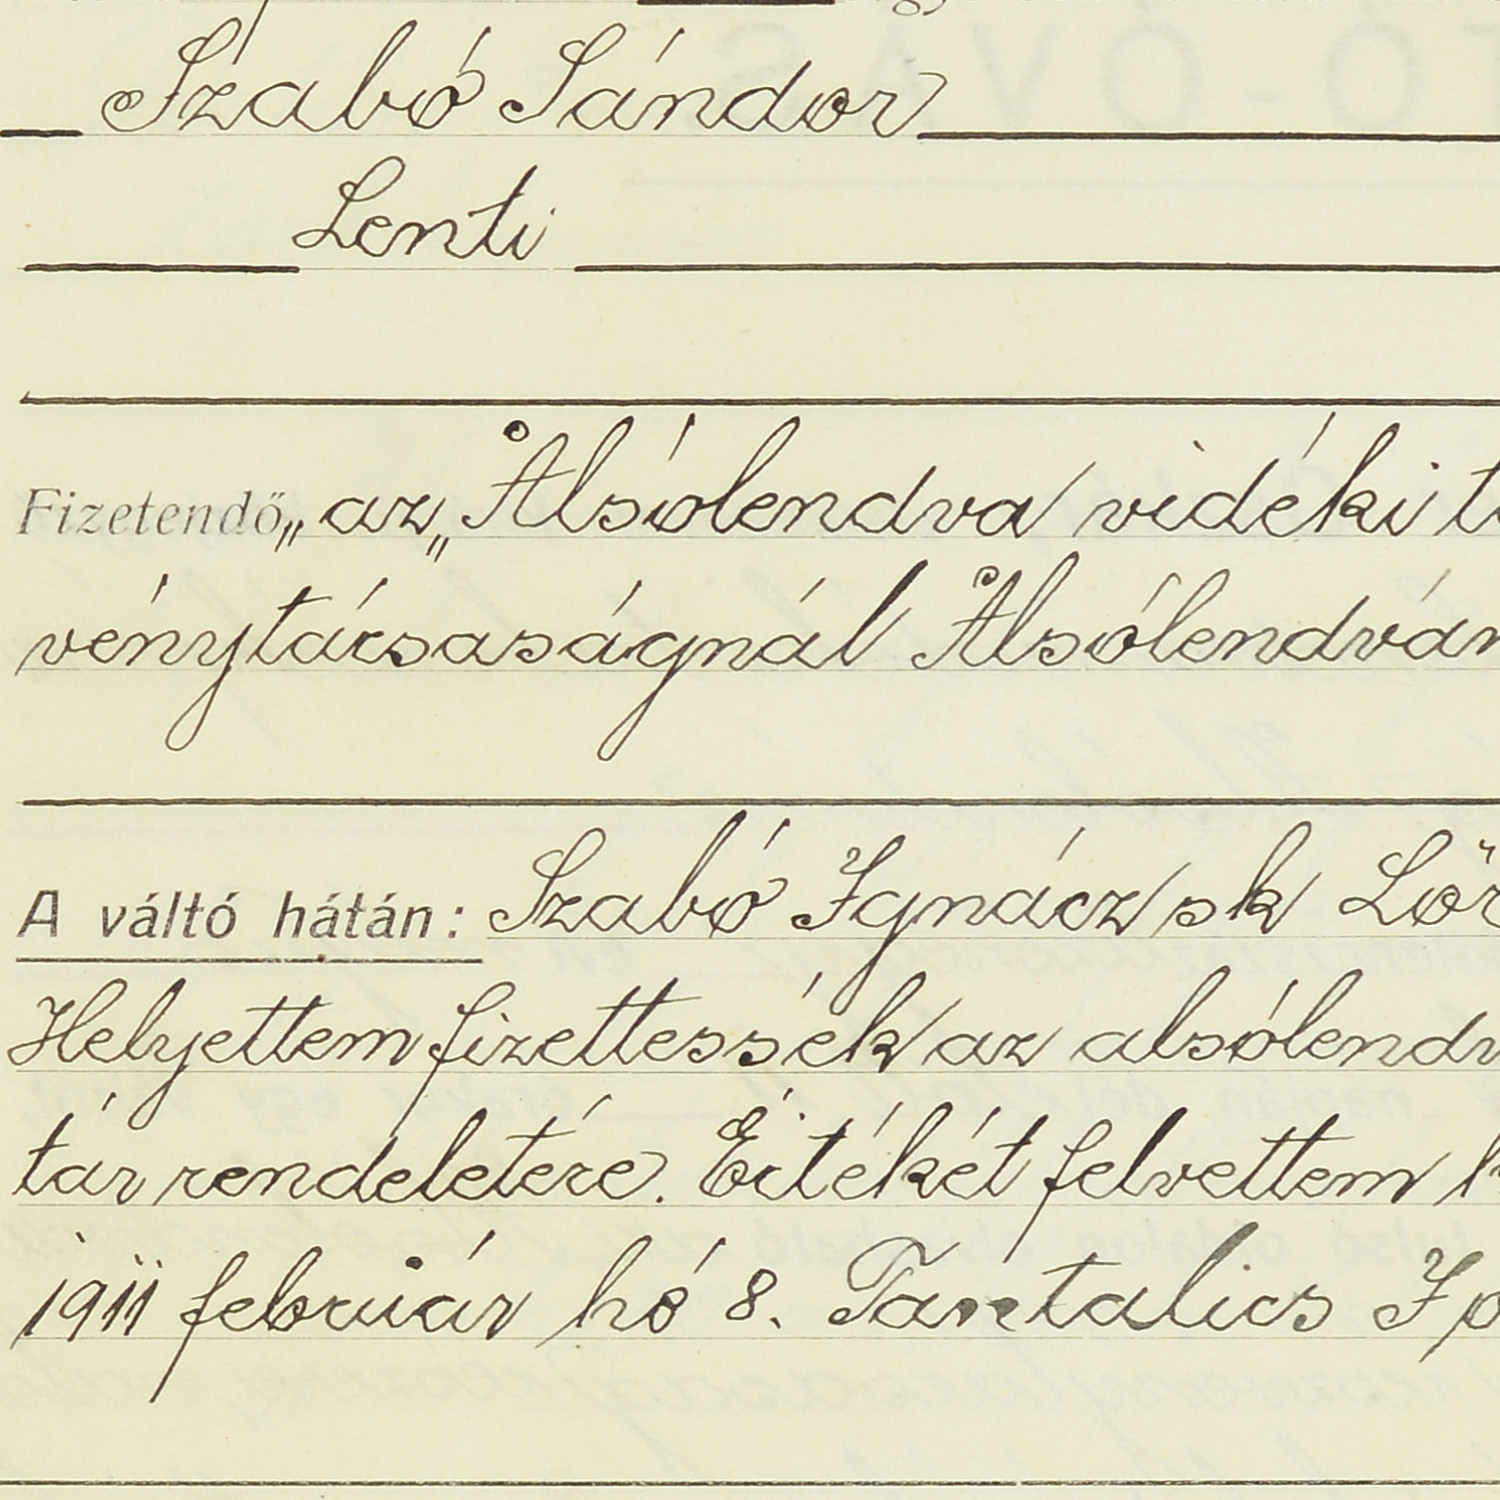 Szabó Sándor
Lenti
Fizetendő „az „Alsólendva vidéki
vénytársaságnál Alsólendván
A váltó hátán: Szabó Ignácz sk
Helyettem fizettessék az
tár rendeletére. Értékét felvettem
1911 február hó 8. Tantalics